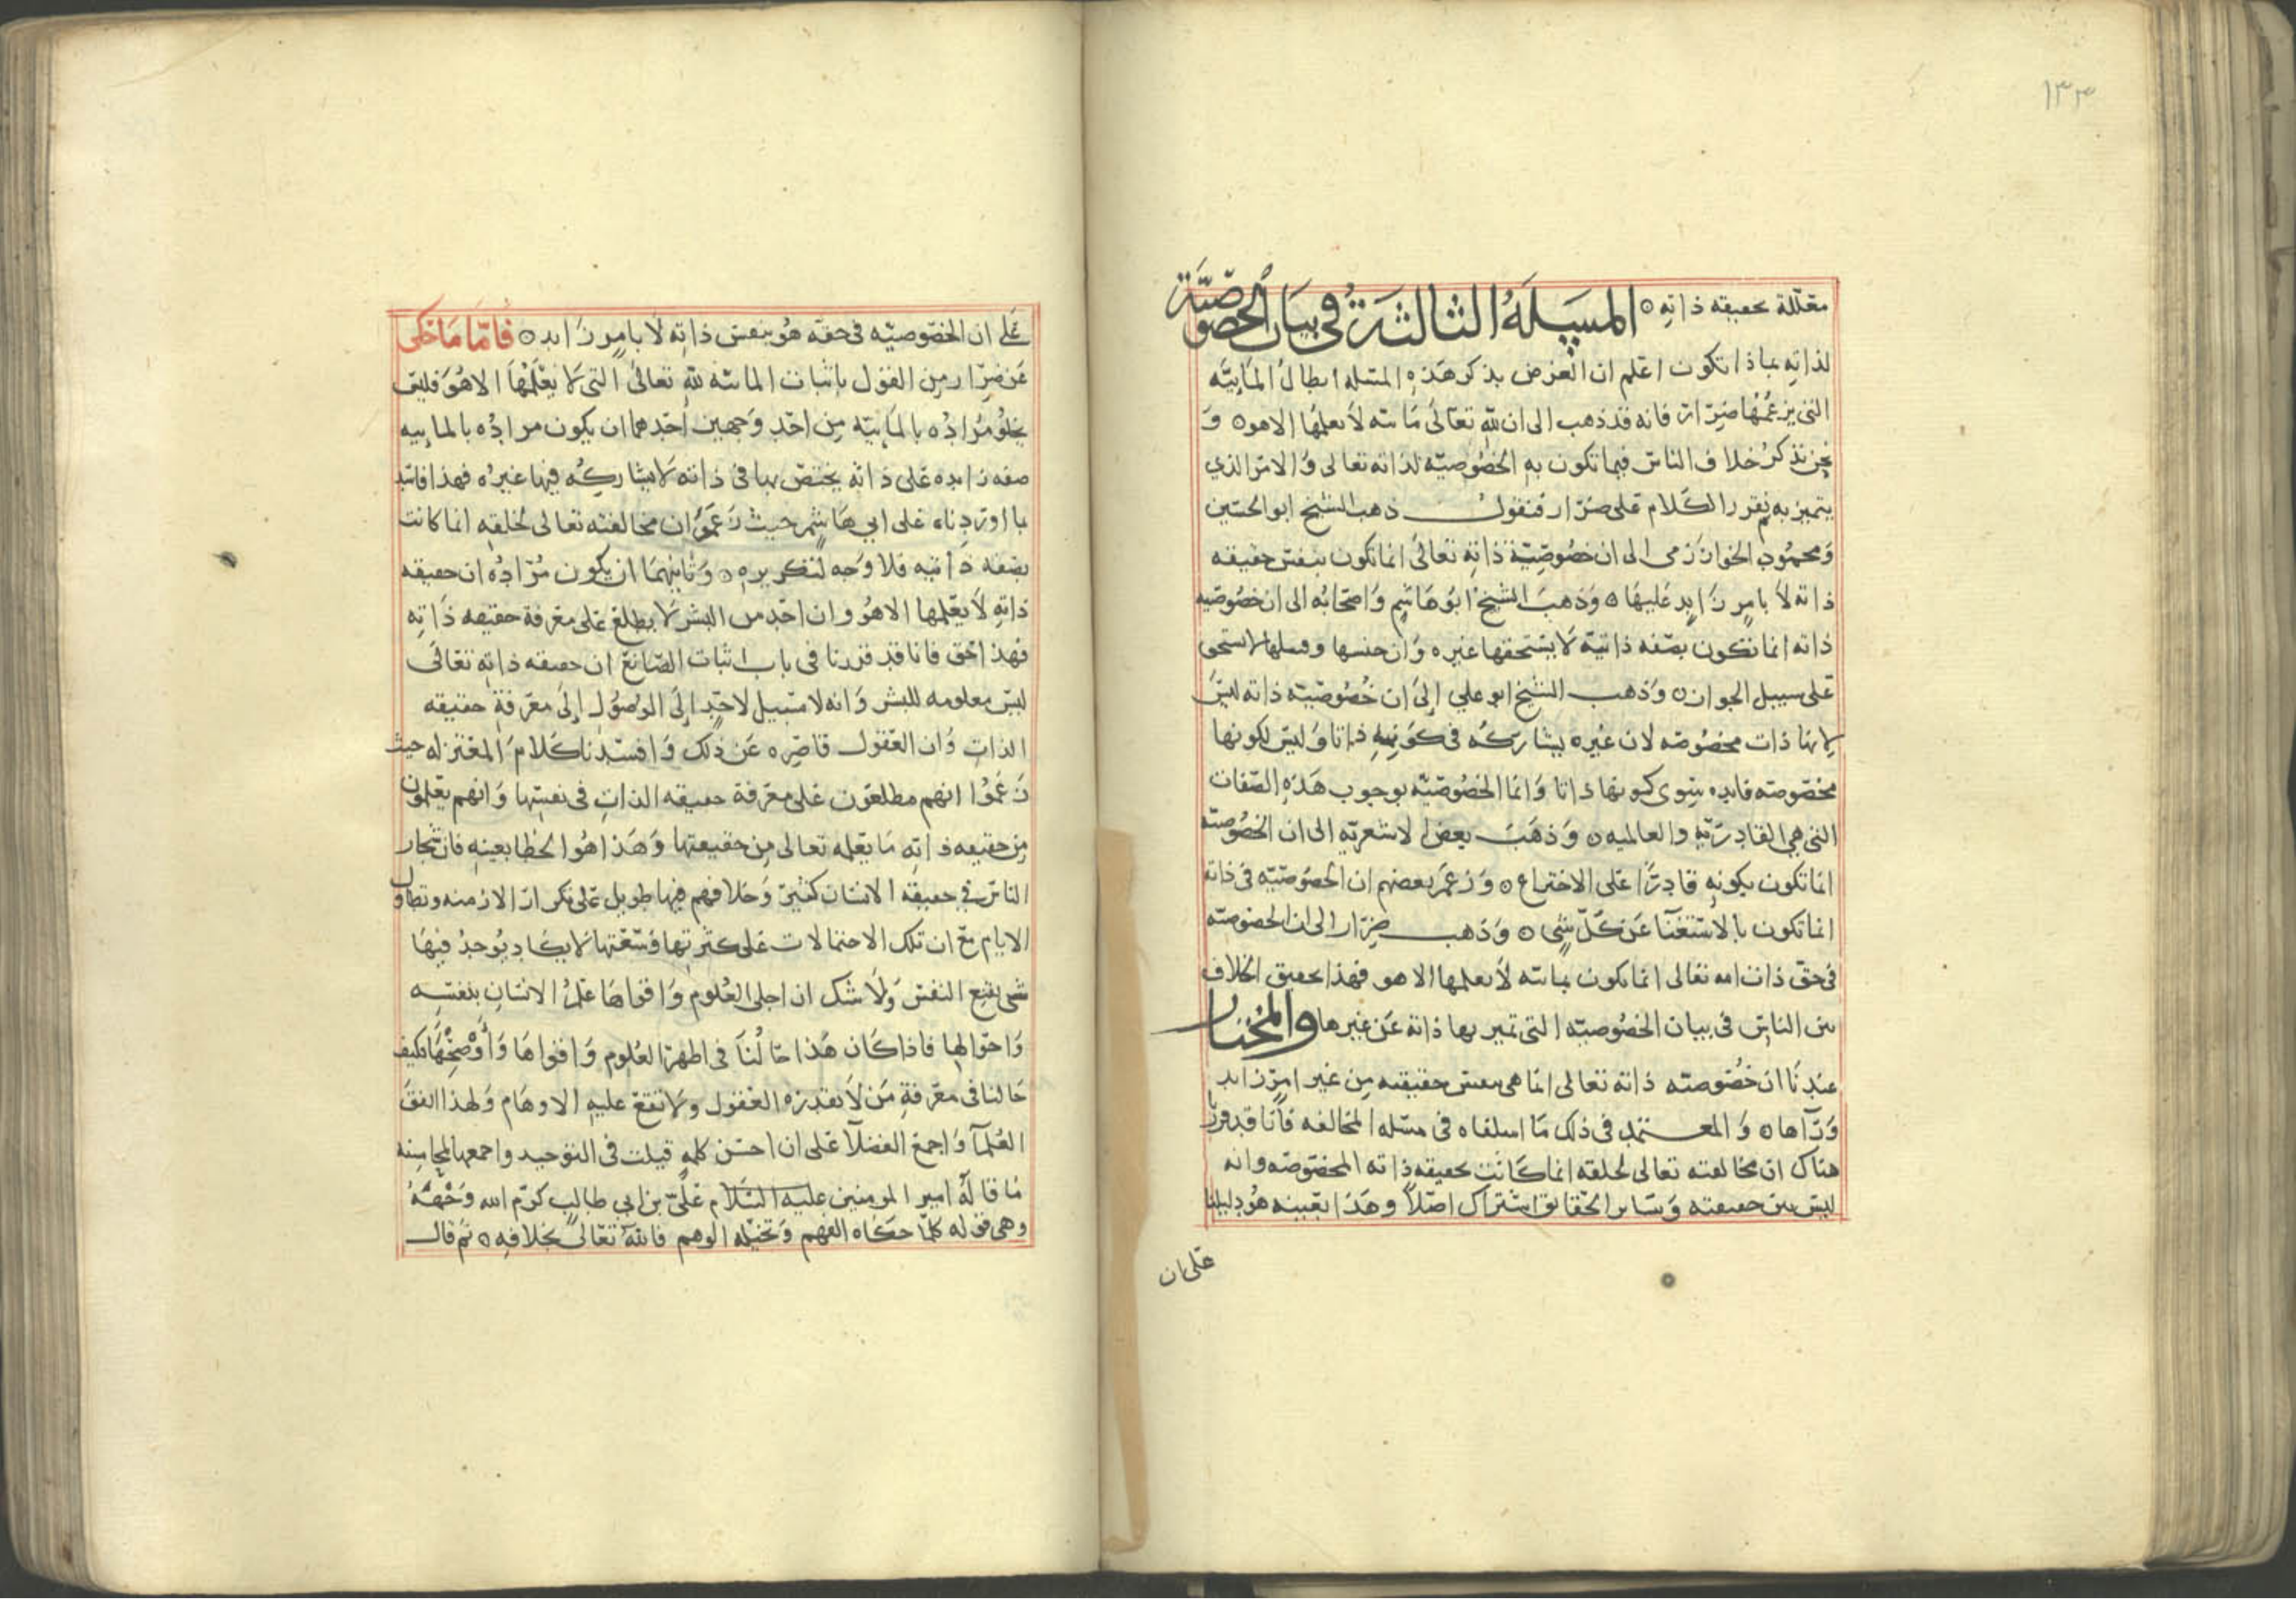 ١٣٣
معللة بحقيقه ذاته ه المسئلة الثالثة في بيان الخصوصية
لذاته بماذا تكون اعلم ان الغرض بذكر هذه المسئله ابطال المائيّه
التي يزعمها ضرار فانه قد ذهب الى ان لله تعالى مائيه لا يعلمها الا هو ه و
نحن نذكر خلاف الناس فيما تكون به الخصوصيّه لذاته تعالى والامر الذي
يتميز به ثم نقرر الكلام على ضرار فنقول ذهب الشيخ ابو الحسين
ومحمود الخوارزمي الى ان خصوصيّة ذاته تعالى انما تكون بنفس حقيقه
ذاته لا بامرٍ زايدٍ عليها ه وذهب الشيخ ابو هاشم واصحابه الى ان خصوصيه
ذاته انما تكون بصفه ذاتيّه لا يستحقها غيره وان جنسها وقبيلها لا يستحق
على سبيل الجواز ه وذهب الشيخ ابو علي الى ان خصوصيّه ذاته ليس
لانها ذات مخصوصه لان غيره يشاركه في كونه ذاتا وليس لكونها
مخصوصه فايده سوى كونها ذاتا وانما الخصوصيّه بوجوب هذه الصفات
التي هي القادريّه والعالميه ه وذهب بعض الاشعريّه الى ان الخصوصيّه
انما تكون بكونه قادرًا على الاختراع ه وزعم بعضهم ان الخصوصيّه في ذاته
انما تكون بالاستغنآ عن كلّ شي ه وذهب ضرار الى ان الخصوصيّه
في حقّ ذات الله تعالى انما تكون بمائيه لا يعلمها الا هو فهذا تحقيق الخلاف
بين الناس في بيان الخصوصيّه التي تميز بها ذاته عن غيرها والمختار
عندنا ان خصوصيّه ذاته تعالى انما هي بنفس حقيقته من غير امرٍ زايد
ورآها ه والمعتمد في ذلك ما اسلفناه في مسئله المخالفه فانا قد قررنا
هناك ان مخالفته تعالى لخلقه انما كانت بحقيقه ذاته المخصوصه وانه
ليس بين حقيقته وساير الحقايق اشتراك اصلا وهذا بعينه هو دليلنا
على ان
على ان الخصوصيّه في حقه هو بنفس ذاته لا بامرٍ زايد ه فامّا ما حكى
عن ضرار من القول باثبات المائيه لله تعالى التي لا يعلمها الا هو فليس
يخلو مراده بالمائيّه من احد وجهين احدهما ان يكون مراده بالماييه
صفه زايده على ذاته يختص بها في ذاته لا يشاركه فيها غيره فهذا فاسد
بما اوردناه على ابي هاشم حيث زعم ان مخالفته تعالى لخلقه انما كانت
بصفه ذاتيه فلا وجه لتكريره ه وثانيهما ان يكون مراده ان حقيقه
ذاته لا يعلمها الا هو وان احد من البشر لا يطلع على معرفة حقيقه ذاته
فهذا حق فانا قد قررنا في باب اثبات الصانع ان حقيقه ذاته تعالى
ليس معلومه للبشر وانه لا سبيل لاحدٍ الى الوصول الى معرفة حقيقه
الذات وان العقول قاصره عن ذلك وافسدنا كلام المعتزله حيث
زعموا انهم مطلعون على معرفة حقيقه الذات في نفسها وانهم يعلمون
من حقيقه ذاته ما يعلمه تعالى من حقيقتها وهذا هو الخطا بعينه فان تحار
الناس في حقيقه الانسان كثير وخلافهم فيها طويل على تكرار الازمنه وتطاول
الايام مع ان تلك الاحتمالات على كثرتها وسعتها لا يكاد يوجد فيها
شي يقنع النفس ولا شك ان اجلى العلوم واقواها علم الانسان بنفسه
واحوالها فاذا كان هذا حالنا في اظهر العلوم واقواها واوضحها فكيف
حالنا في معرفة من لا تقدره العقول ولا تقع عليه الاوهام ولهذا اتفق
العلمآ واجمع الفضلآ على ان احسن كلمهٍ قيلت في التوحيد واجمعها لمحاسنه
ما قاله امير المومنين عليه السلام علي بن ابي طالب كرّم الله وجهه
وهي قوله كلّما حكاه الفهم وتخيّله الوهم فالله تعالى بخلافه ه ثم قال